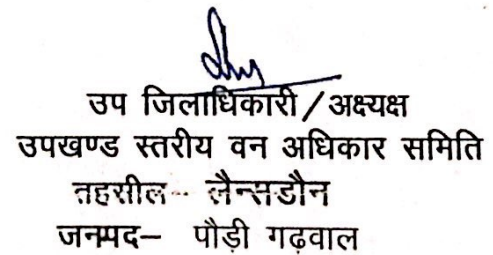 उप जिलाधिकारी/अक्ष्यक्ष
उपखण्ड स्तरीय वन अधिकार समिति
तहसील-- लैन्सडौन
जनमपद– पौड़ी गढ़वाल